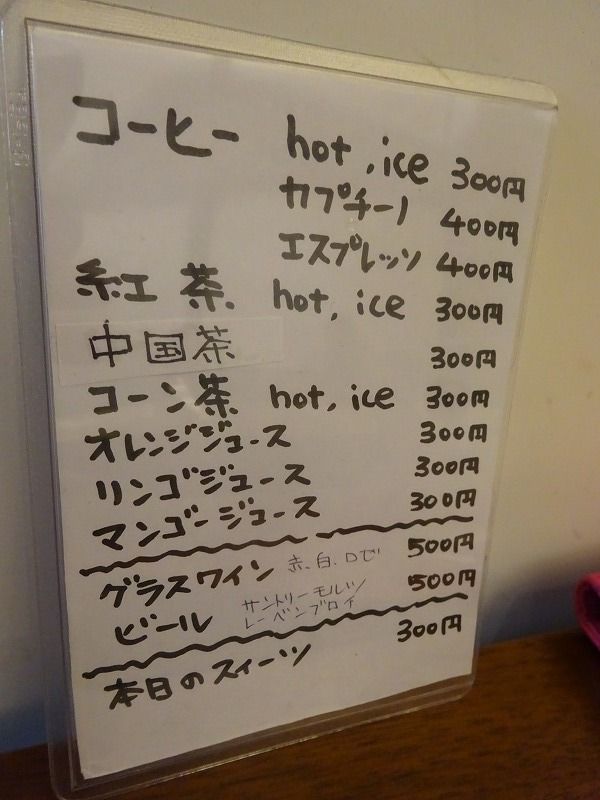 コーヒー hot, ice 300円
カプチーノ 400円
エスプレッソ 400円
紅茶 hot, ice 300円
中国茶 300円
コーン茶 hot, ice 300円
オレンジジュース 300円
リンゴジュース 300円
マンゴージュース 300円
グラスワイン 赤、白、ロゼ 500円
ビール サントリーモルツ/ 500円
レーベンブロイ
本日のスイーツ 300円